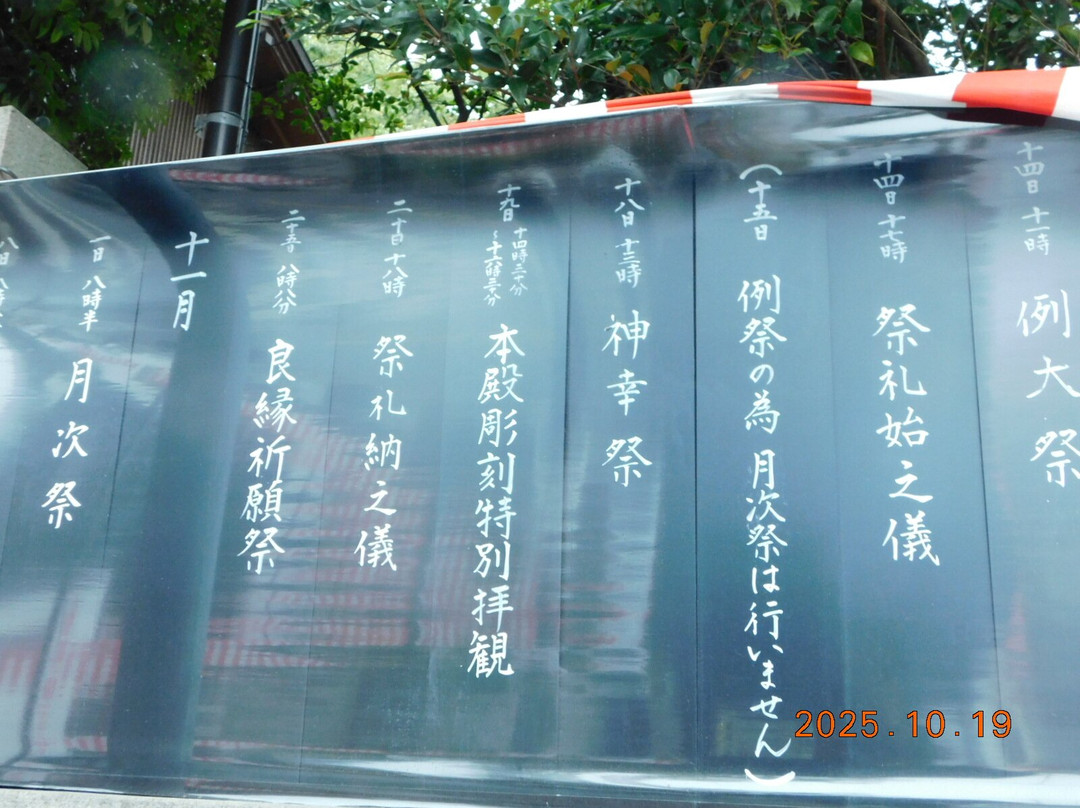 十四日 十一時 例大祭
十四日 十七時 祭礼始之儀
（十五日 例祭の為 月次祭は行いません）
十八日 十三時 神幸祭
十九日 十四時三十分～十六時三十分 本殿彫刻特別拝観
二十日 十八時 祭礼納之儀
二十五日 八時八分 良縁祈願祭
十一月
一日 八時半 月次祭
2025.10.19